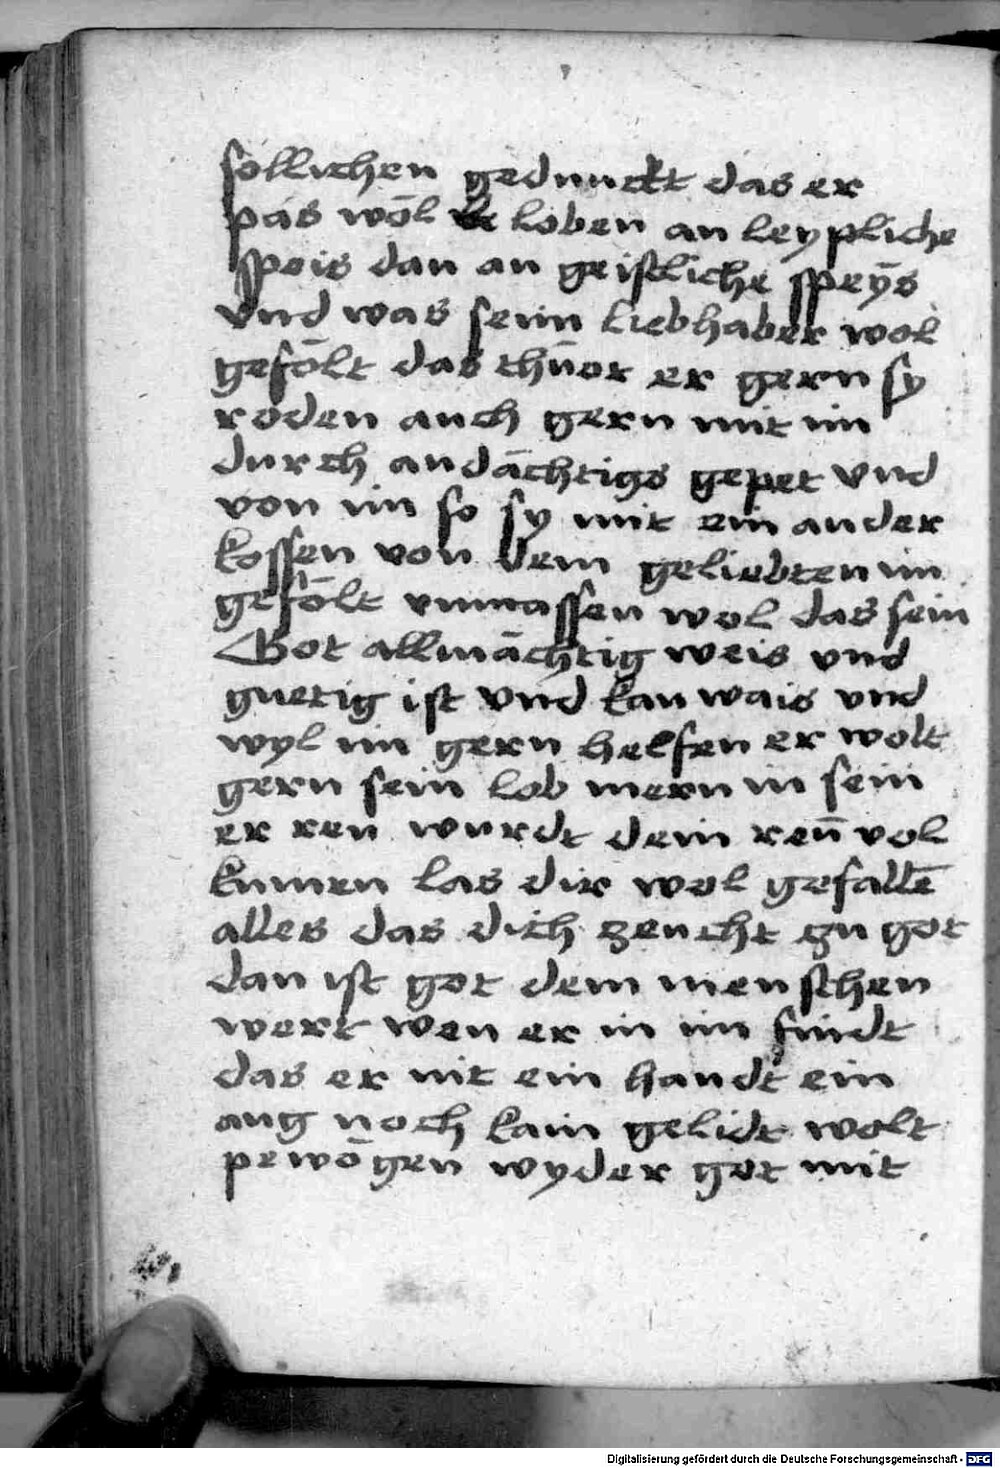 sollichen gedunckt das er
pas wōl loben an leypliche
speis dan an geistliche speȳs
vnd was seim liebhaber wol
gefōlt das thūot er gern sy
roden auch gern mit im
durch andāchtigs gepet vnd
von im so sy mit ein ander
kossen von dem geliebten im
gefōlt vnmassen wol das sein
Got allmāchtig weis vnd
guetig ist vnd kan wais vnd
wyl im gern helfen er wolt
gern sein lob mern in sein
er ren wurdt dein reū vol
kumen las dir wol gefallē
alles das dich zeucht zu got
dan ist got dem menschen
wert wen er in im findt
das er nit ein handt ein
aug noch kain gelidt wolt
pewōgen wyder got mit
Digitalisierung gefördert durch die Deutsche Forschungsgemeinschaft - DFG